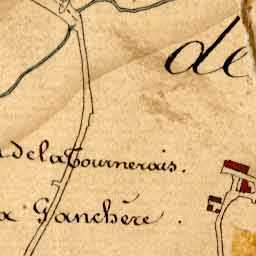 de
de la Tournerais.
Ganchère.